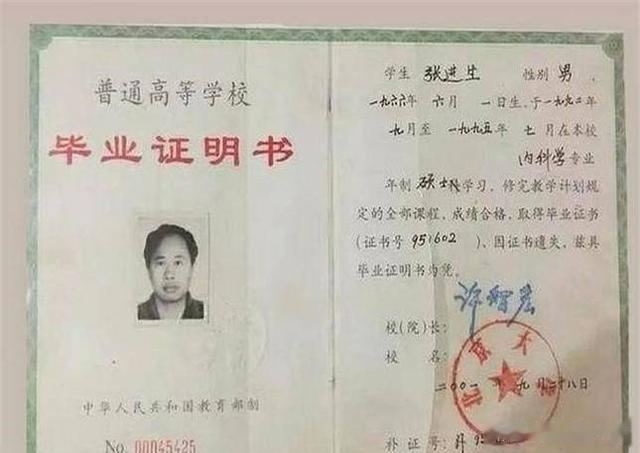 普通高等学校
毕业证明书
中华人民共和国教育部制
No. 00045425
学生 张进生 性别 男,
一九六六年 六月 一日生,于一九九二年
九月至 一九九五年 七月在本校
内科学专业
年制 硕士 学习,修完教学计划规
定的全部课程,成绩合格,取得毕业证书
(证书号 951602),因证书遗失,兹具
毕业证明书为凭。
校(院)长:
校 名
二〇〇一年 九月二十八日
补 证 号